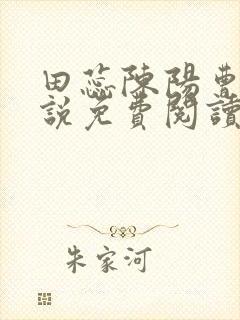 田蕊陳陽曹
說免費閱讀
朱家河